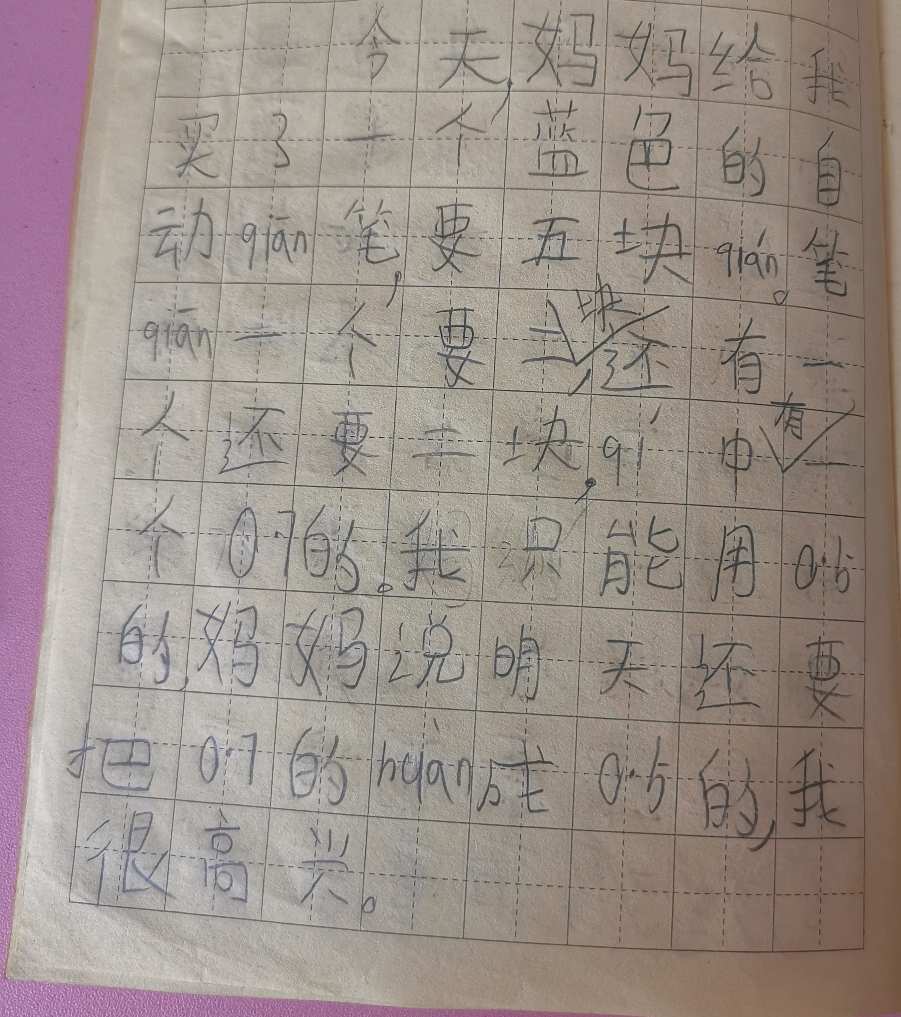 今天,妈妈给我
买了一个蓝色的自
动qiān笔,要五块qián。笔
qiān一个要二块,还有一
个还要二块,qí中有一
个0.7的。我只能用0.5
的,妈妈说明天还要
把0.7的huàn成0.5的,我
很高兴。